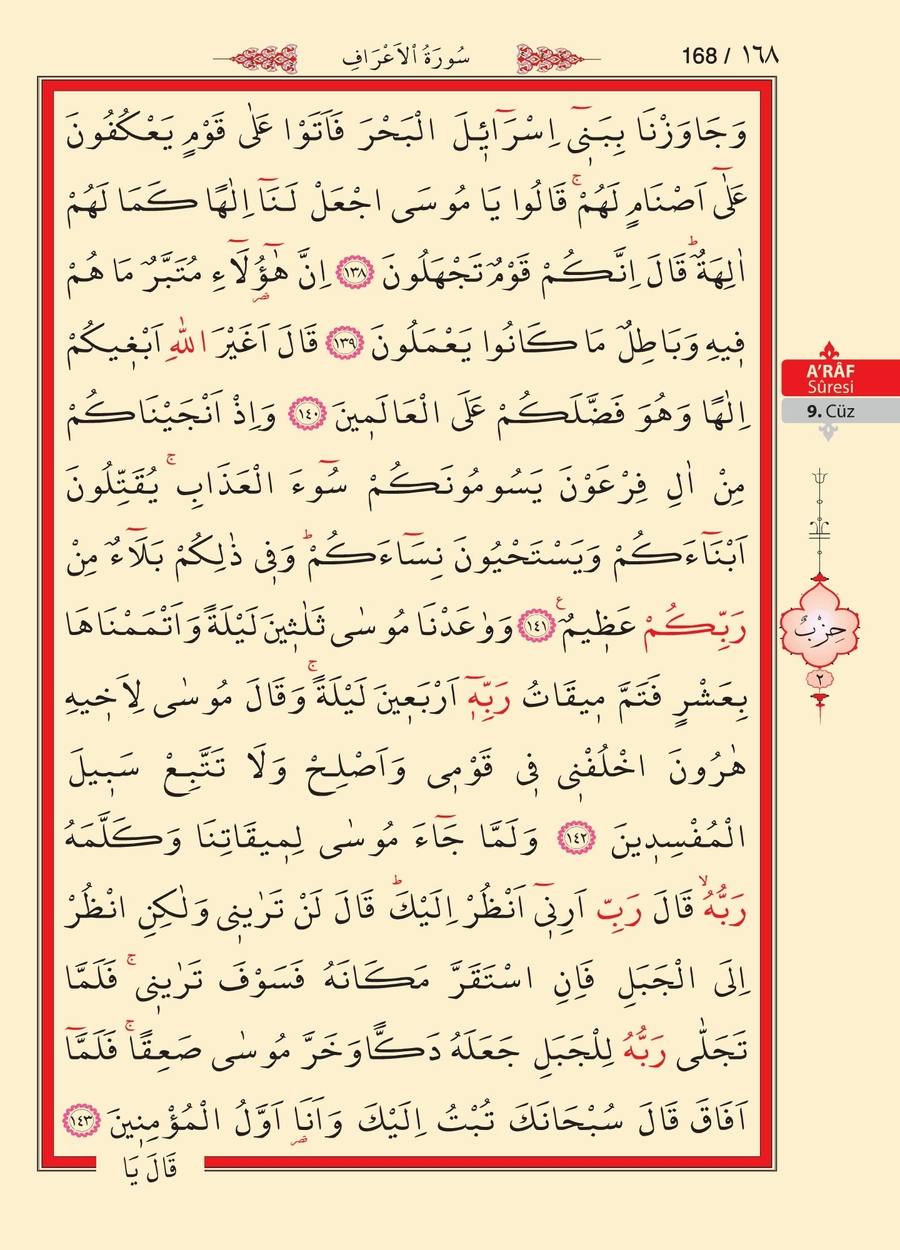 سُورَةُ الْاَعْرَافِ
168 / ١٦٨
وَجَاوَزْنَا بِبَنٖٓي اِسْرَٓائٖلَ الْبَحْرَ فَاَتَوْا عَلٰى قَوْمٍ يَعْكُفُونَ
عَلٰٓى اَصْنَامٍ لَهُمْۚ قَالُوا يَا مُوسَى اجْعَلْ لَنَٓا اِلٰهًا كَمَا لَهُمْ
اٰلِهَةٌؕ قَالَ اِنَّكُمْ قَوْمٌ تَجْهَلُونَ ﴿١٣٨﴾ اِنَّ هٰٓؤُ۬لَٓاءِ مُتَبَّرٌ مَا هُمْ
قصر
فٖيهِ وَبَاطِلٌ مَا كَانُوا يَعْمَلُونَ ﴿١٣٩﴾ قَالَ اَغَيْرَ اللّٰهِ اَبْغٖيكُمْ
اِلٰهًا وَهُوَ فَضَّلَكُمْ عَلَى الْعَالَمٖينَ ﴿١٤٠﴾ وَاِذْ اَنْجَيْنَاكُمْ
مِنْ اٰلِ فِرْعَوْنَ يَسُومُونَكُمْ سُٓوءَ الْعَذَابِۚ يُقَتِّلُونَ
اَبْنَٓاءَكُمْ وَيَسْتَحْيُونَ نِسَٓاءَكُمْؕ وَفٖي ذٰلِكُمْ بَلَٓاءٌ مِنْ
رَبِّكُمْ عَظٖيمٌ ع ﴿١٤١﴾ وَوٰعَدْنَا مُوسٰى ثَلٰثٖينَ لَيْلَةً وَاَتْمَمْنَاهَا
بِعَشْرٍ فَتَمَّ مٖيقَاتُ رَبِّهٖٓ اَرْبَعٖينَ لَيْلَةًۚ وَقَالَ مُوسٰى لِاَخٖيهِ
هٰرُونَ اخْلُفْنٖي فٖي قَوْمٖي وَاَصْلِحْ وَلَا تَتَّبِعْ سَبٖيلَ
الْمُفْسِدٖينَ ﴿١٤٢﴾ وَلَمَّا جَٓاءَ مُوسٰى لِمٖيقَاتِنَا وَكَلَّمَهُ
رَبُّهُۙ قَالَ رَبِّ اَرِنٖٓي اَنْظُرْ اِلَيْكَؕ قَالَ لَنْ تَرٰينٖي وَلٰكِنِ انْظُرْ
اِلَى الْجَبَلِ فَاِنِ اسْتَقَرَّ مَكَانَهُ فَسَوْفَ تَرٰينٖيۚ فَلَمَّا
تَجَلّٰى رَبُّهُ لِلْجَبَلِ جَعَلَهُ دَكًّا وَخَرَّ مُوسٰى صَعِقًاۚ فَلَمَّٓا
اَفَاقَ قَالَ سُبْحَانَكَ تُبْتُ اِلَيْكَ وَاَنَا۬ اَوَّلُ الْمُؤْمِنٖينَ ﴿١٤٣﴾
قصر
قَالَ يَا
A'RÂF
Sûresi
9. Cüz
حِزْبٌ
٢